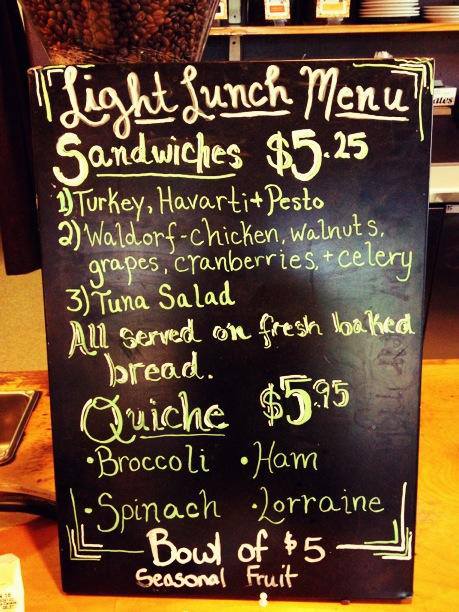 Light Lunch Menu
Sandwiches $5.25
1) Turkey, Havarti + Pesto
2) Waldorf-chicken, walnuts,
grapes, cranberries, + celery
3) Tuna Salad
All served on fresh baked
bread.
Quiche $5.95
• Broccoli • Ham
• Spinach • Lorraine
Bowl of $5
Seasonal Fruit